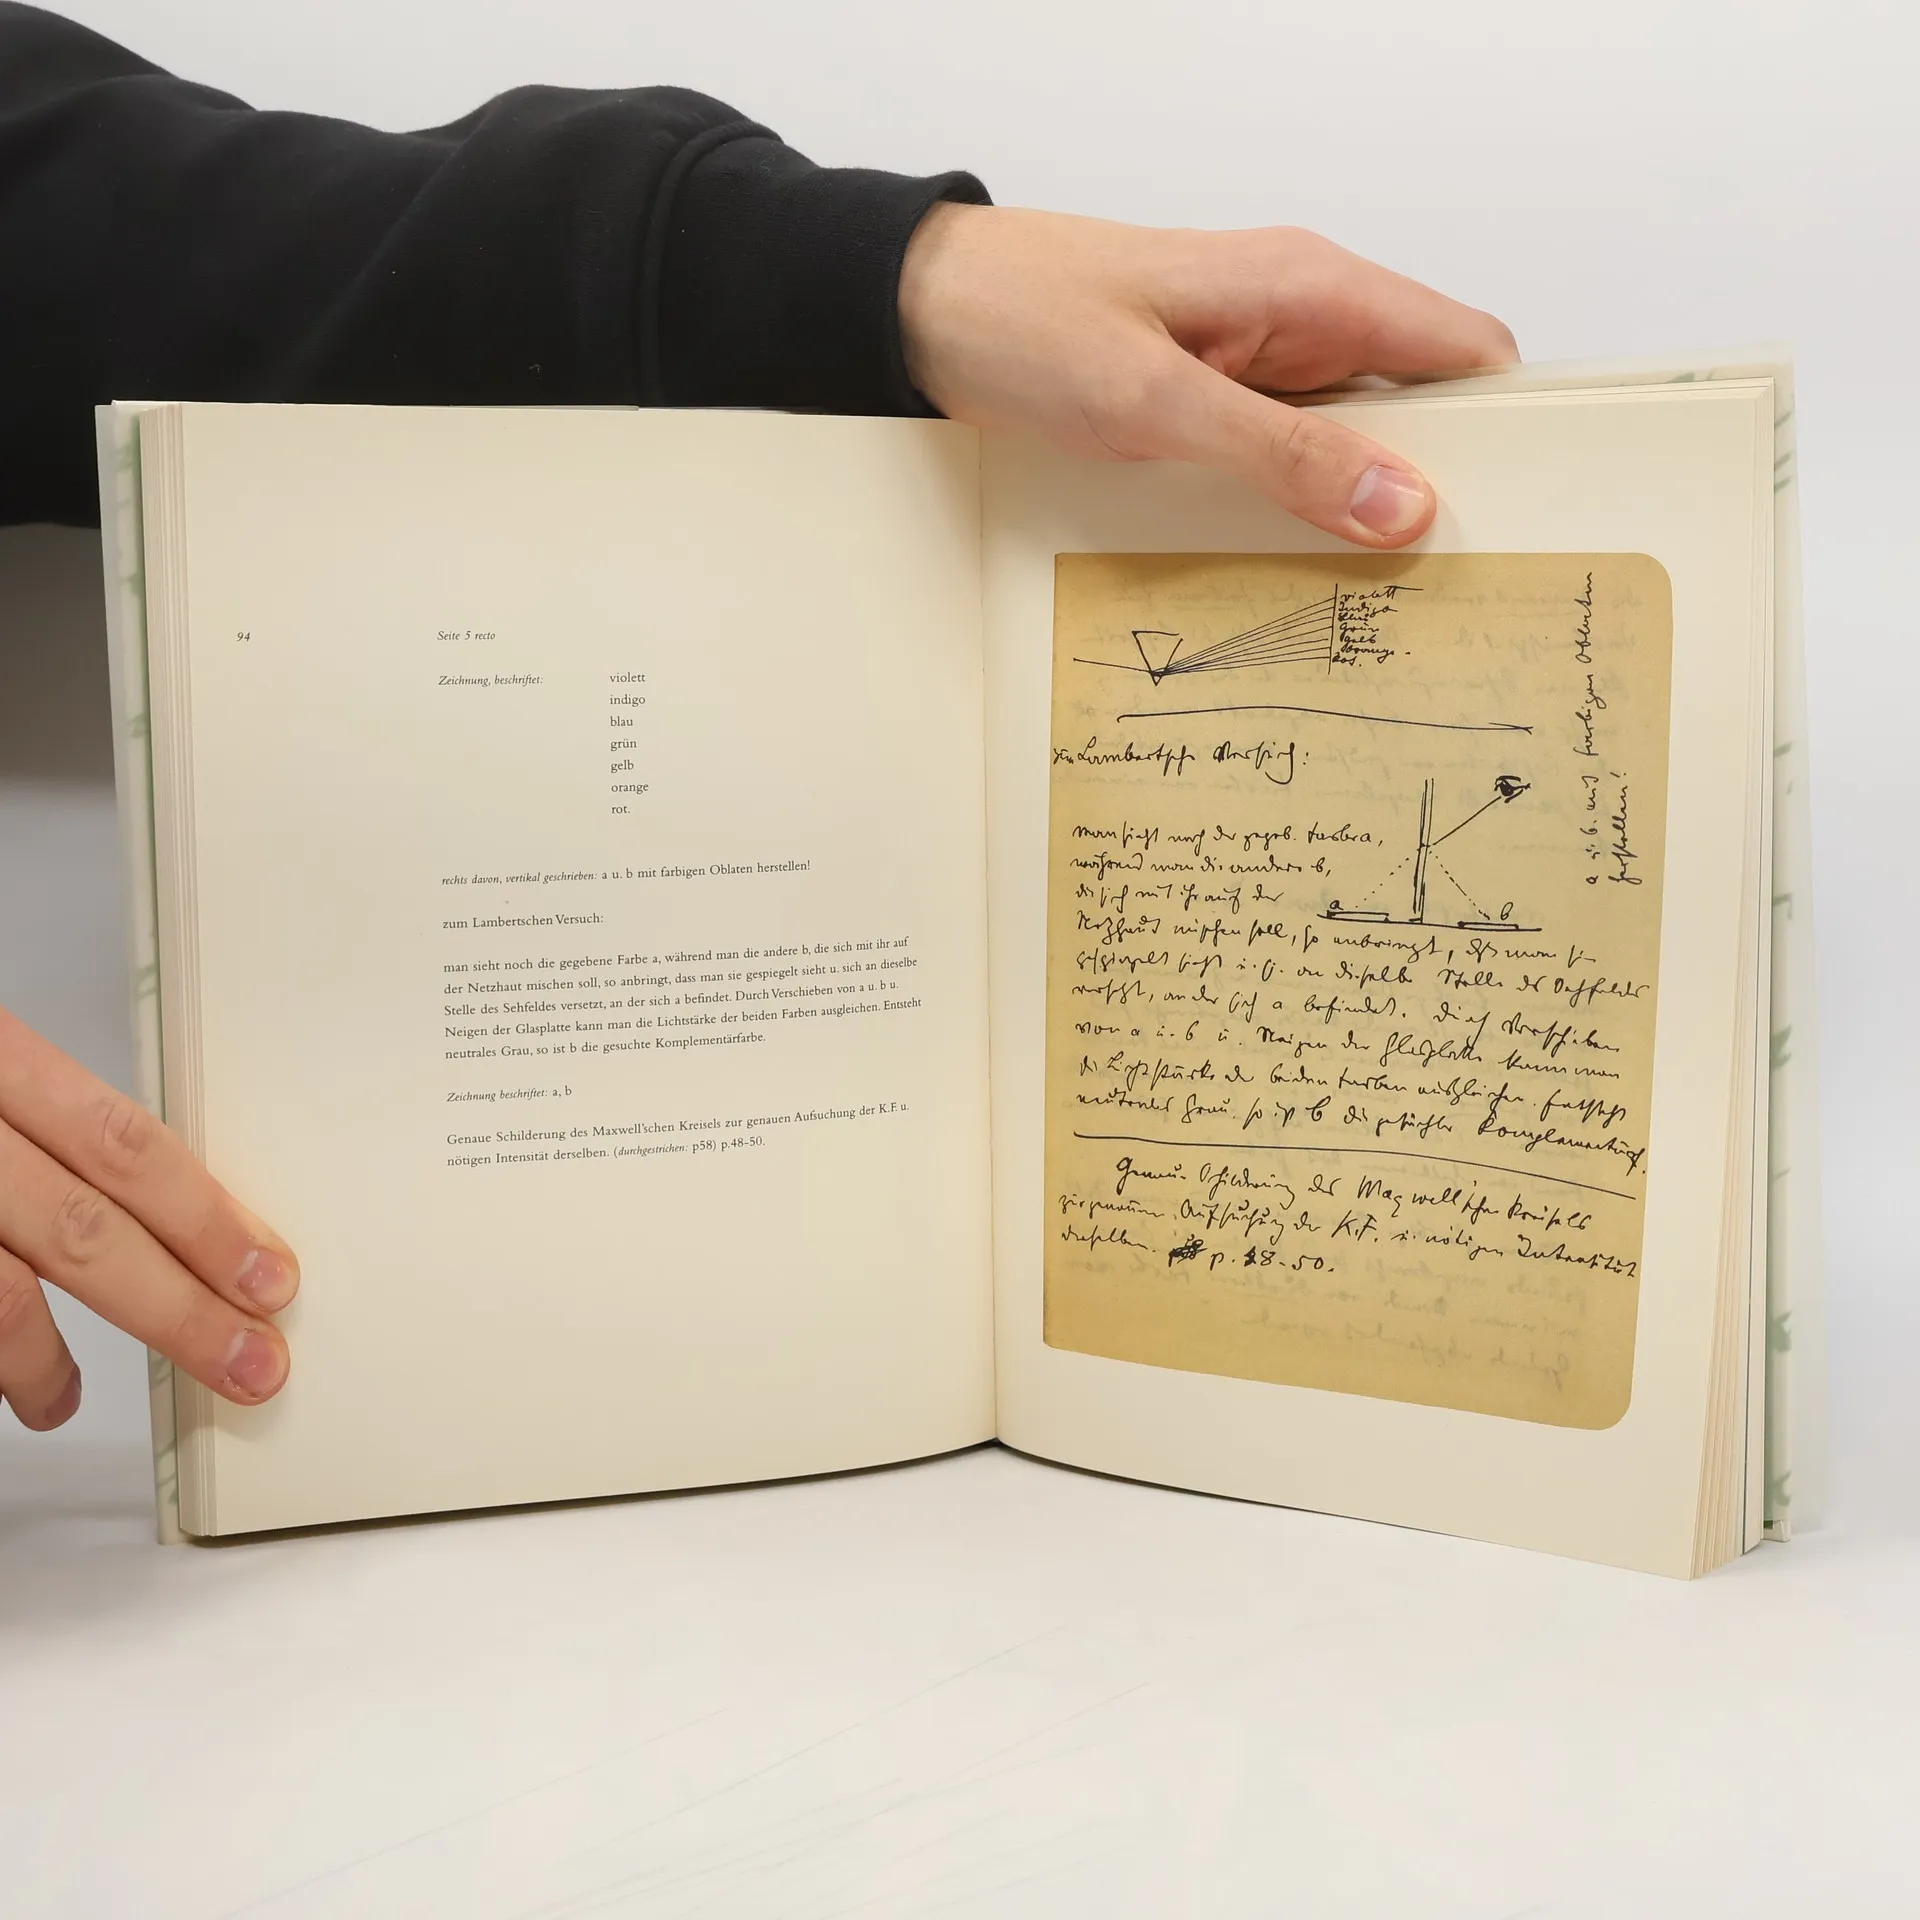 94
Seite 5 recto
Zeichnung, beschriftet: violett
indigo
blau
grün
gelb
orange
rot.
rechts davon, vertikal geschrieben: a u. b mit farbigen Oblaten herstellen!
zum Lambertschen Versuch:
man sieht noch die gegebene Farbe a, während man die andere b, die sich mit ihr auf
der Netzhaut mischen soll, so anbringt, dass man sie gespiegelt sieht u. sich an dieselbe
Stelle des Sehfeldes versetzt, an der sich a befindet. Durch Verschieben von a u. b u.
Neigen der Glasplatte kann man die Lichtstärke der beiden Farben ausgleichen. Entsteht
neutrales Grau, so ist b die gesuchte Komplementärfarbe.
Zeichnung beschriftet: a, b
Genaue Schilderung des Maxwell'schen Kreisels zur genauen Aufsuchung der K.F. u.
nötigen Intensität derselben. (durchgestrichen: p58) p.48-50.
violett
Indigo
blau
Grün
gelb
Orange
Rot.
a u. b. mit farbigen Oblaten
herstellen!
zum Lambertsche Versuch:
man sieht noch die gegeb. Farbe a,
während man die andere b,
die sich mit ihr auf der
a
b
Netzhaut mischen soll, so anbringt, dass man sie
gespiegelt sieht u. s. an dieselbe Stelle des Sehfeldes
versetzt, an der sich a befindet. Durch Verschieben
von a u. b u. Neigen der Glasplatte kann man
die Lichtstärke der beiden Farben ausgleichen. Entsteht
neutrales Grau, so ist b die gesuchte Komplementärf.
Genaue Schilderung des Maxwell'schen Kreisels
zur genauen Aufsuchung der K.F. u. nötigen Intensität
derselben. p. 48-50.